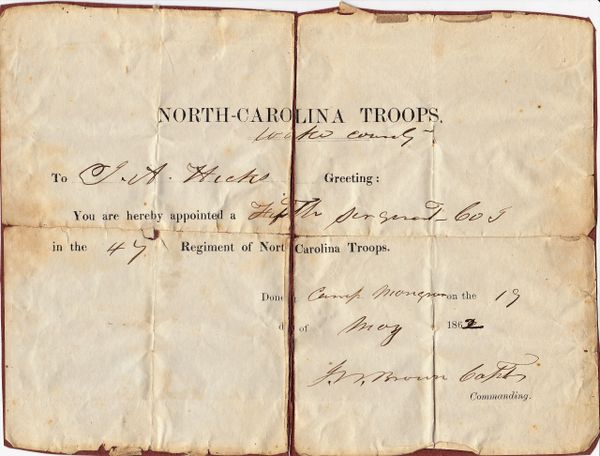 NORTH-CAROLINA TROOPS,
Wake county
To J. A. Hicks Greeting:
You are hereby appointed a Fifth sergeant Co I
in the 47 Regiment of North Carolina Troops.
Done Camp Mangum on the 19
day of May 1862
Brown Capt
Commanding.